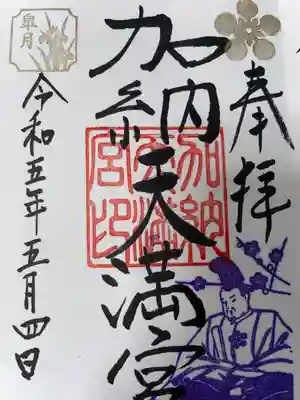 奉拝
加納天満宮
加納
天満
宮印
皐月
令和五年五月四日